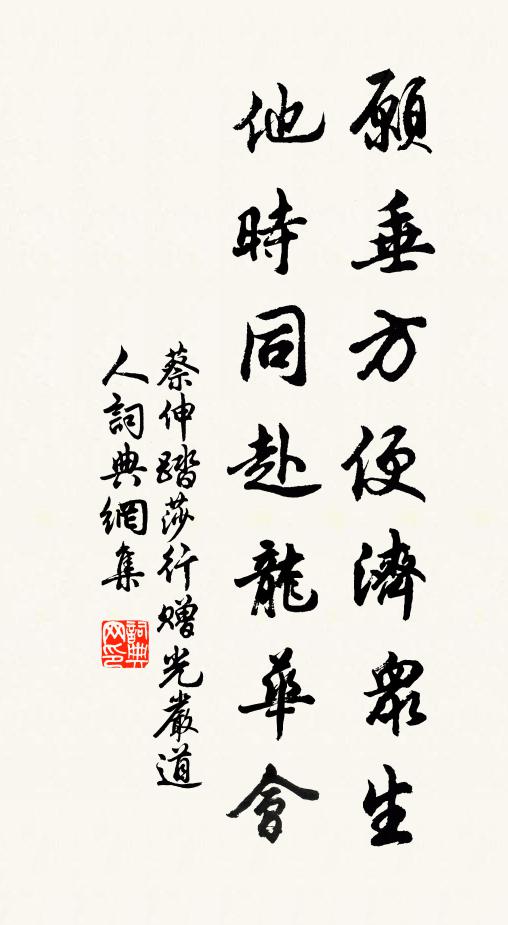 願垂方便濟眾生
他時同赴龍華會
蔡伸踏莎行贈光嚴道
人詞典網集
詞典
网印